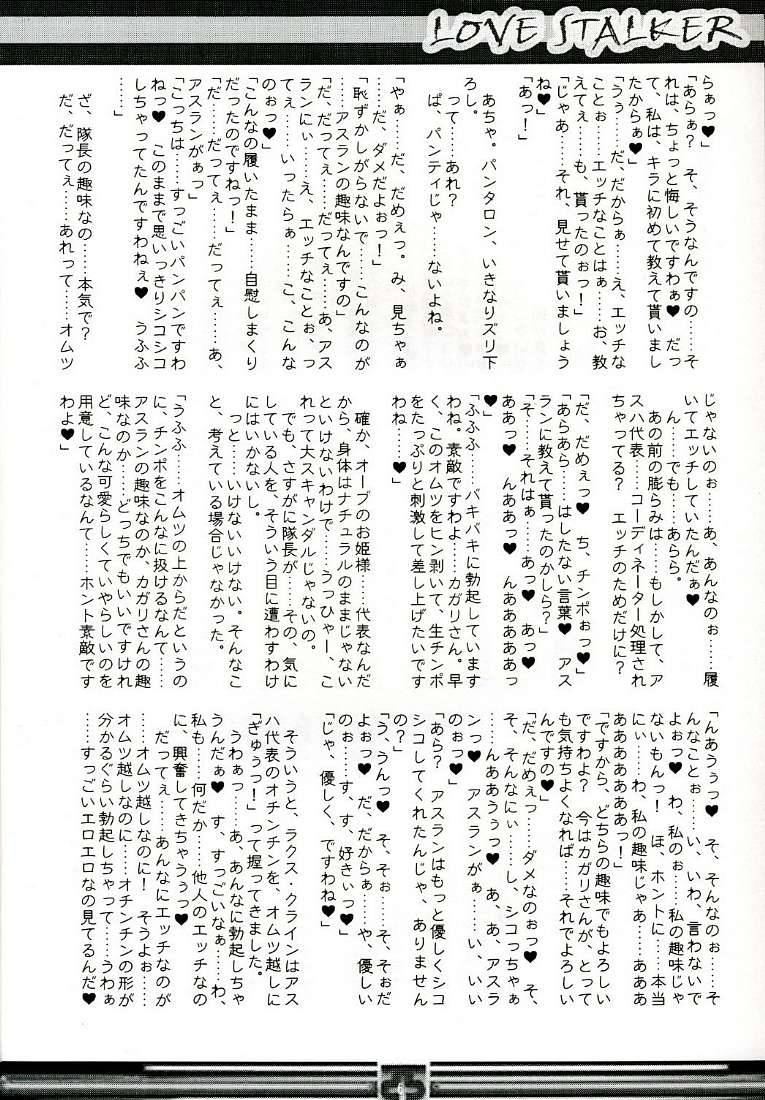 LOVE STALKER
らぁっ♥」
「あらぁ?　そ、そうなんですの……そ
れは、ちょっと悔しいですわぁ♥　だっ
て、私は、キラに初めて教えて貰いまし
たからぁ♥」
「うぅ……だ、だからぁ……え、エッチな
ことぉ……エッチなことはぁ……お、教
えてぇ……も、貰ったのぉっ！」
「じゃあ……それ、見せて貰いましょう
ね♥」
「あっ！」
　あちゃ。パンタロン、いきなりズリ下
ろし。
　って……あれ？
　ぱ、パンティじゃ……ないよね。
「やぁ……だ、だめぇっ。み、見ちゃぁ
……だ、ダメだよぉっ！」
「恥ずかしがらないで……こんなのが
……アスランの趣味なんですの」
「だ、だってぇ……だってぇ……あ、アス
ランにぃ……え、エッチなことぉ、っ
てぇ……いったらぁ……こ、こんな
のぉっ♥」
「こんなの履いたまま……自慰しまくり
だったのですねっ！」
「だ……だってぇ……だってぇ……あ、
アスランがぁっ」
「こっちは……すっごいパンパンですわ
ねっ♥　このままで思いっきりシコシコ
しちゃってたんですわねぇ♥　うふふ
……」
　ざ、隊長の趣味なの……本気で？
　だ、だってぇ……あれって……オムツ
じゃないのぉ……あ、あんなのぉ……履
いてエッチしていたんだぁ♥
　ん……でも……あらら。
　あの前の膨らみは……もしかして、ア
スハ代表……コーディネーター処理され
ちゃってる？　エッチのためだけに？
「だ、だめぇっ♥　ち、チンポぉっ♥」
「あらあら……はしたない言葉♥　アス
ランに教えて貰ったのかしら？」
「そ……それはぁ……あっ♥　あっ♥
ああっ♥　んああっ♥　んああああああっ
♥」
「ふふふ……バキバキに勃起しています
わね。素敵ですわよ……カガリさん。早
く、このオムツをヒン剥いて、生チンポ
をたっぷりと刺激して差し上げたいです
わね……♥」
　確か、オーブのお姫様……代表なんだ
から、身体はナチュラルのままじゃない
といけないわけで……うっひゃー、こ
れって大スキャンダルじゃないの。
　でも、さすがに隊長が……その、気に
している人を、そういう目に遭わすわけ
にはいかないし。
　っと……いけないいけない。そんなこ
と、考えている場合じゃなかった。
「うふふ……オムツの上からだというの
に、チンポをこんなに扱けるなんて……
アスランの趣味なのか、カガリさんの趣
味なのか……どっちでもいいですけれ
ど、こんな可愛らしくていやらしいのを
用意しているなんて……ホント素敵です
わよ♥」
「んあうぅっ♥　そ、そんなのぉ……そ
んなことぉ……い、いわ、言わないで
よぉっ♥　わ、私のぉ……私の趣味じゃ
ないもんっ！　ほ、ホントに……本当
にぃ……わ、私の趣味じゃあ……あああ
あああああああっ！」
「ですから、どちらの趣味でもよろしい
ですわよ？　今はカガリさんが、とって
も気持ちよくなれば……それでよろしい
んですの♥」
「だ、だめぇっ……ダメなのぉっ♥　そ、
そ、そんなにぃ……し、シコっちゃぁ
……んああうぅっ♥　あ、あ、アスラ
ンっ♥　アスランがぁ……い、いい
のぉっ♥」
「あら？　アスランはもっと優しくシコ
シコしてくれたんじゃ、ありません
の？」
「う、うんっ♥　そ、そぉ……そ、そぉだ
よぉっ♥　だ、だからぁ……や、優しい
のぉ……す、す、好きぃっ♥」
「じゃ、優しく、ですわね♥」
　そういうと、ラクス・クラインはアス
ハ代表のオチンチンを、オムツ越しに
「ぎゅぅっ！」って握ってきました。
　うわぁっ……あ、あんなに勃起しちゃ
うんだぁ♥　す、すっごいなぁ……わ、
私も……何だか……他人のエッチなの
に、興奮してきちゃうぅっ♥
　だってぇ……あんなにエッチなのが
……オムツ越しなのに！　そうよぉ……
オムツ越しなのに……オチンチンの形が
分かるぐらい勃起しちゃって……うわぁ
……すっごいエロエロなの見てるんだ♥
6